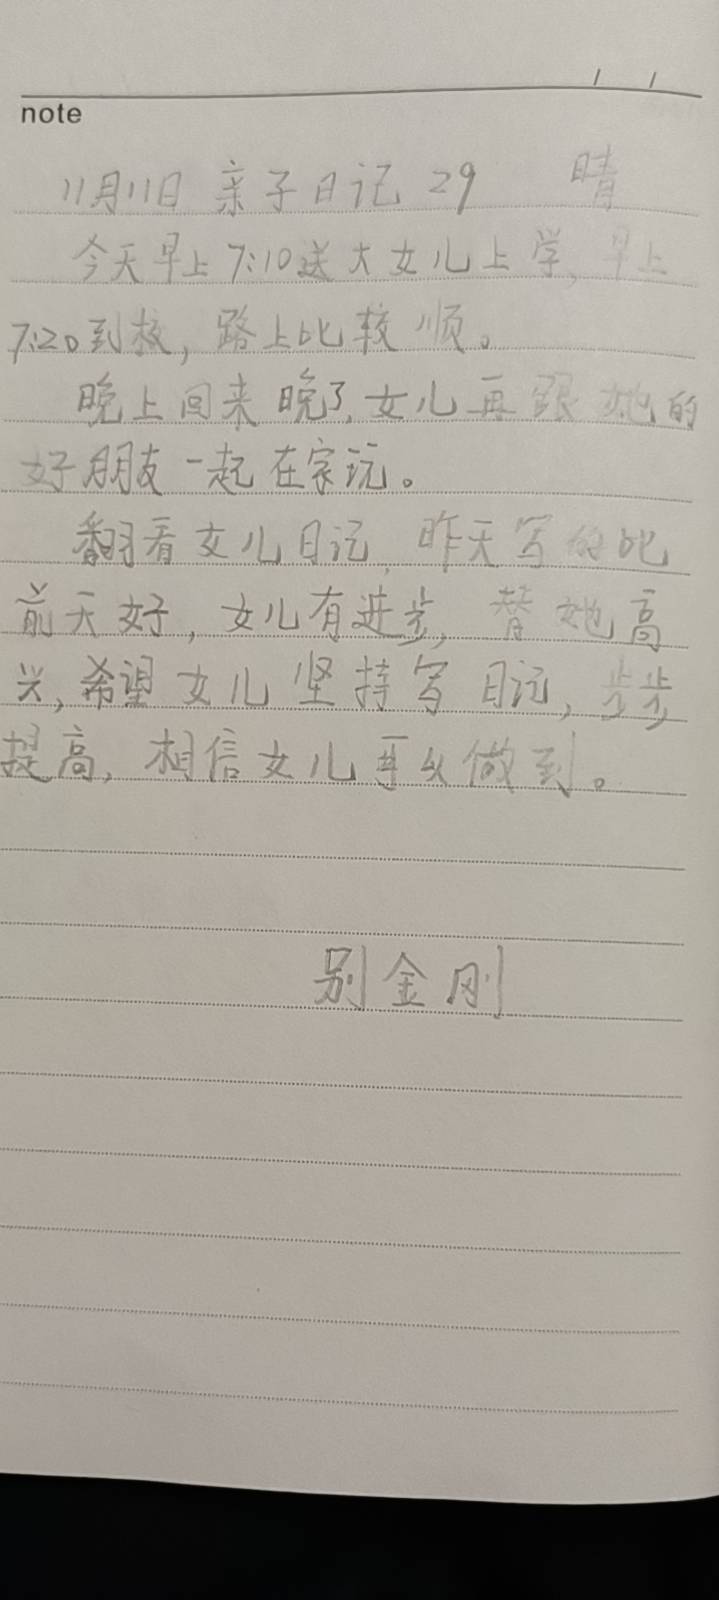 note
11月11日 亲子日记 29 晴
今天早上7:10送大女儿上学,早上
7:20到校,路上比较顺。
晚上回来晚了,女儿再跟她的
好朋友一起在家玩。
翻看女儿日记,昨天写的比
前天好,女儿有进步,替她高
兴,希望女儿坚持写日记,步步
提高,相信女儿 做到。
别金刚